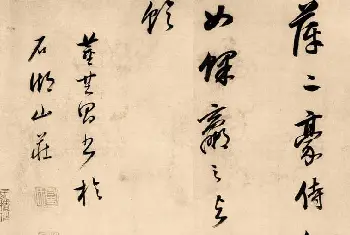 萍二豪侍
如蜾蠃之与
蛉
董其昌书於
石湖山莊